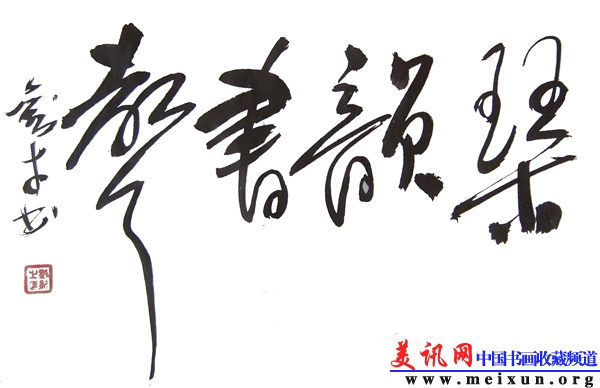 琴韻書聲
美讯网 中国书画收藏频道
www.meixun.org